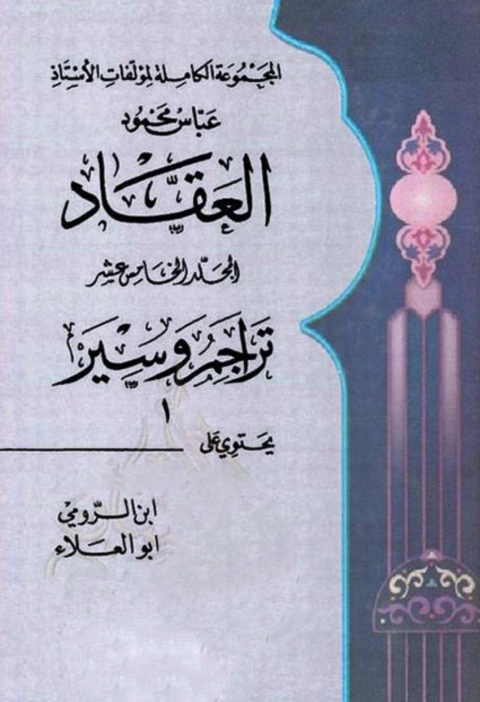 المجموعة الكاملة لمؤلفات الأستاذ
عباس محمود
العقاد
المجلد الخامس عشر
تراجم وسير
١
يحتوي على
ابن الرومي
ابو العلاء